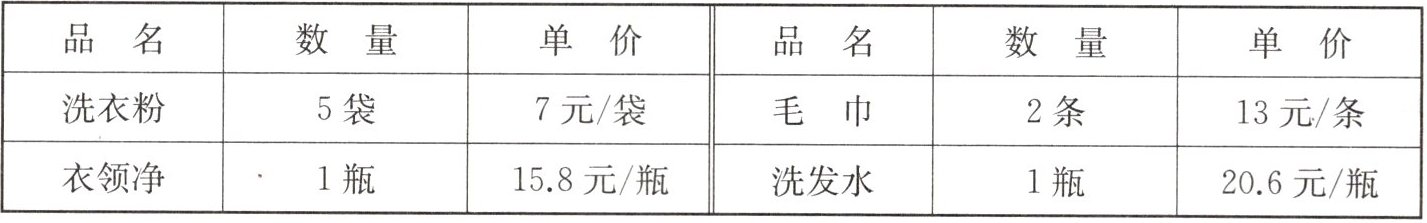 品 名 数 量 单 价 品 名 数 量 单 价
洗衣粉 5袋 7元/袋 毛 巾 2条 13元/条
衣领净 1瓶 15.8元/瓶 洗发水 1瓶 20.6元/瓶